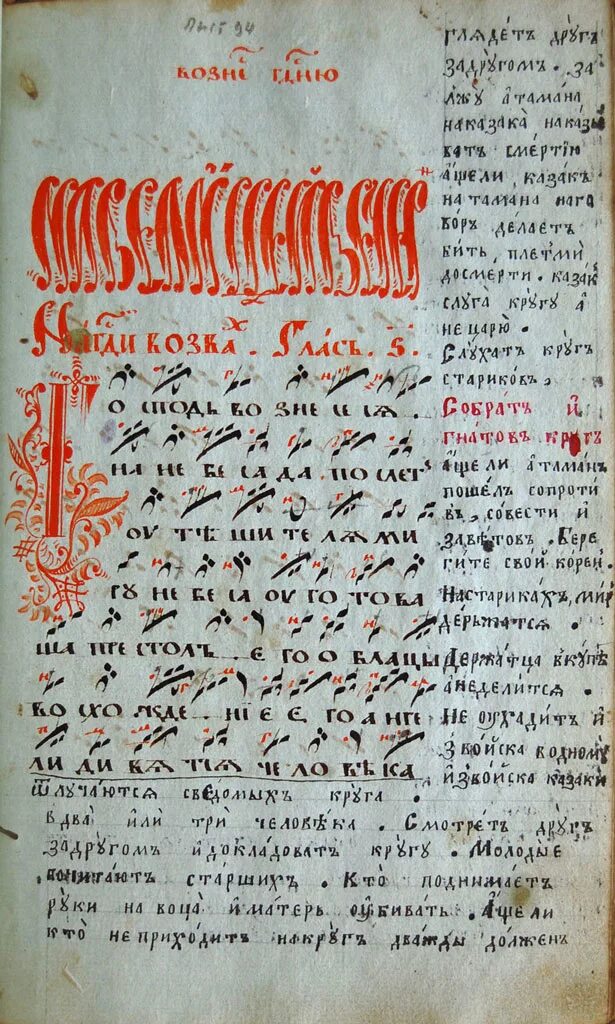 Лист 94
возне҇ гдⷭ҇ню
На гдⷭ҇и возваⷯ . Гласъ . ѕ .
Господь вознесеся .
на небеса да послет
оутѣшителя ми
ру небеса оуготова
ша престолъ его облацы
восхождение его ангe
ли дивятся человѣка
глядетъ другъ
задругомъ . за
лжу атамана
наказака наказы
ватъ смертїю
ащели казакъ
натамана наго
воръ делаетъ
бить плетми
досмерти . казак
слуга кругу а
нецарю .
Слухатъ кругъ
стариковъ .
Собратъ и
гнатовъ кругъ
ащели атаманъ
пошелъ сопроти
въ совести и
завѣтовъ . Бере
гите свой корен .
Настарикахъ мир
держатся .
Держатца вкупѣ
анеделится .
Не оухадитъ и
звойска водному
извойска казаки
Ѿлучаются сведомыхъ круга .
вдва или три человѣка . Смотретъ другъ
задругомъ идокладоватъ кругу . Молодые
почитаютъ старшихъ . Кто поднимаетъ
руки на воца иматерь оубивать . Ащели
кто неприходитъ накругъ дважды долженъ